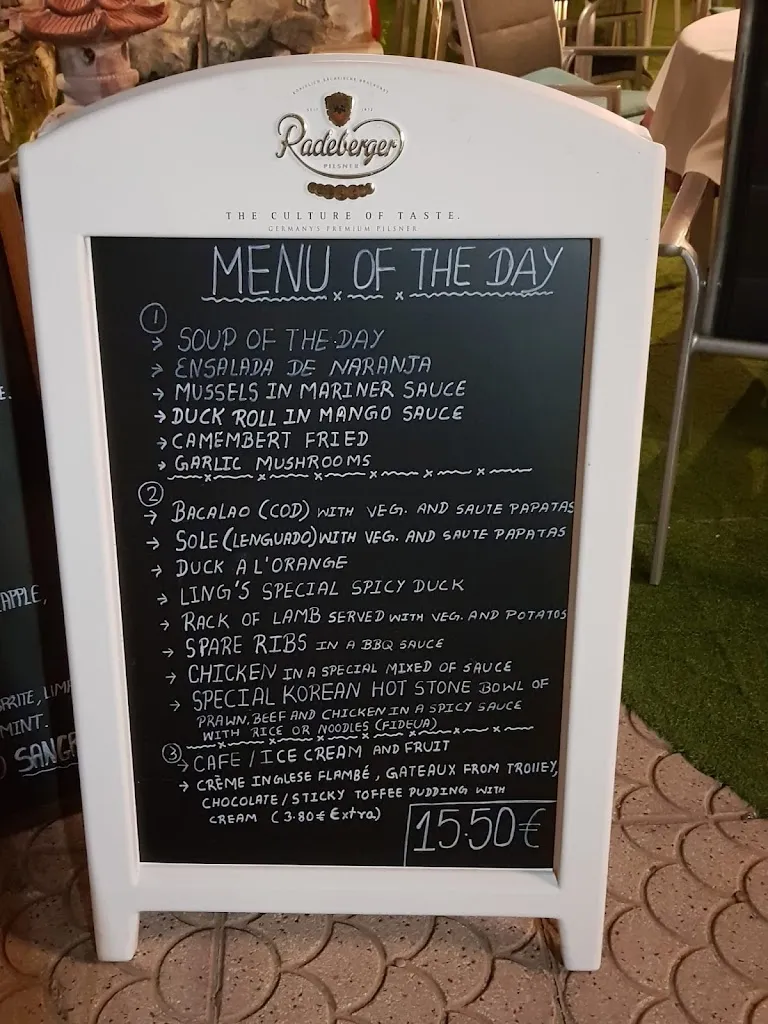 Radeberger
PILSNER
THE CULTURE OF TASTE.
GERMANY'S PREMIUM PILSNER
MENU OF THE DAY
1
→ SOUP OF THE DAY
→ ENSALADA DE NARANJA
→ MUSSELS IN MARINER SAUCE
→ DUCK ROLL IN MANGO SAUCE
→ CAMEMBERT FRIED
→ GARLIC MUSHROOMS
2
→ BACALAO (COD) WITH VEG. AND SAUTE PAPATAS
→ SOLE (LENGUADO) WITH VEG. AND SAUTE PAPATAS
→ DUCK A L'ORANGE
→ LING'S SPECIAL SPICY DUCK
→ RACK OF LAMB SERVED WITH VEG. AND POTATOS
→ SPARE RIBS IN A BBQ SAUCE
→ CHICKEN IN A SPECIAL MIXED OF SAUCE
→ SPECIAL KOREAN HOT STONE BOWL OF
PRAWN, BEEF AND CHICKEN IN A SPICY SAUCE
WITH RICE OR NOODLES (FIDEUA)
3
→ CAFE / ICE CREAM AND FRUIT
→ CRÈME INGLESE FLAMBÉ, GATEAUX FROM TROLLEY,
CHOCOLATE / STICKY TOFFEE PUDDING WITH
CREAM (3.80€ Extra)
15.50€
APPLE,
MINT.